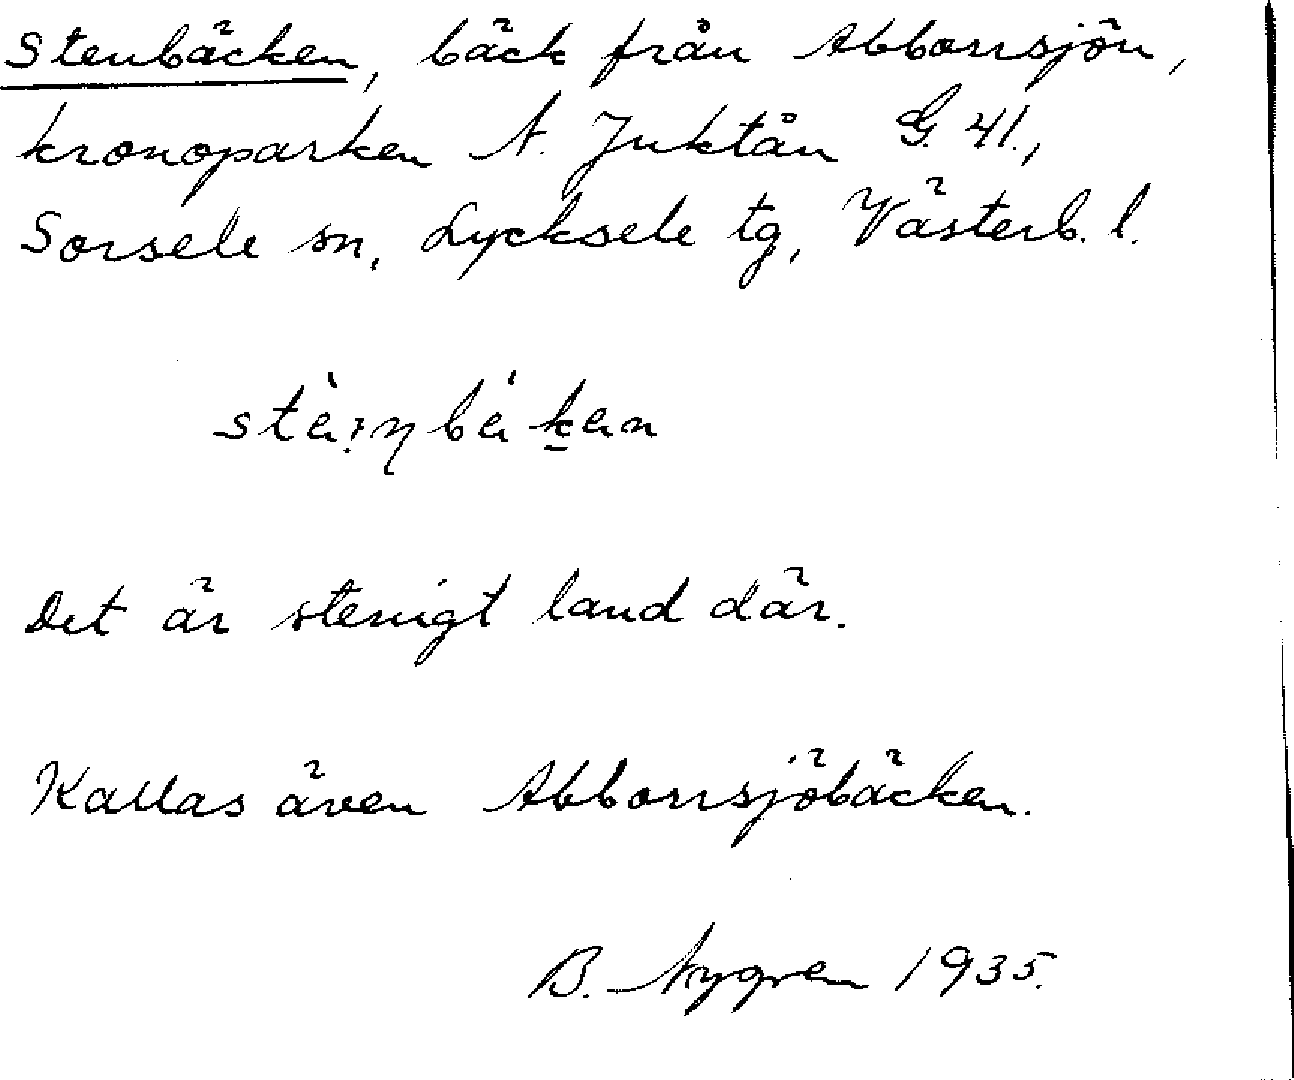 Stenbäcken, bäck från Abborrsjön,
kronoparken N. Juktån G. 41.,
Sorsele sn, Lycksele tg, Västerb. l.
Det är stenigt land där.
Kallas även Abborrsjöbäcken.
B. Nygren 1935.